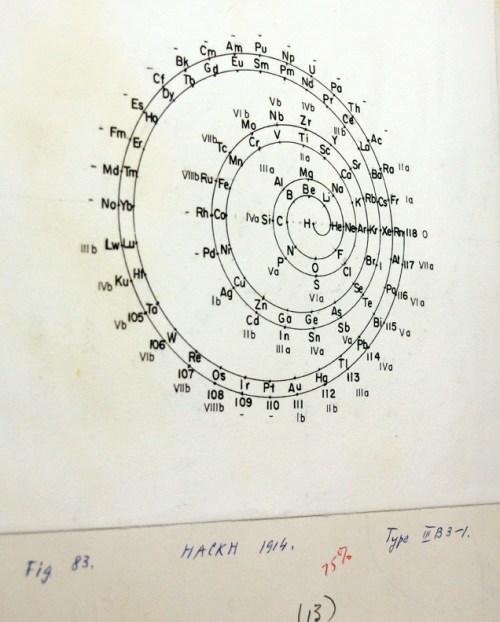 Cm Am Pu Np U Pa Th Ac
Bk Cf Es Fm Md No Lw Ku 105 106 107 108 109 110 111 112 113 114 115 116 117 118
Gd Eu Sm Pm Nd Pr Ce La
Tb Dy Ho Er Tm Yb Lu Hf Ta W Re Os Ir Pt Au Hg Tl Pb Bi Po At Rn
VIb Vb IVb IIIb
Mo Nb Zr Y Sr
VIIb Tc Cr V Ti Sc Ca
VIIIb Ru Fe Mn
IIIa IIa
Al Mg Na
B Be Li
K Rb Cs Fr Ia
Ba Ra IIa
- Rh Co IVa Si C H He Ne Ar Kr Xe Rn 118 O
- Pd Ni
P N O F
Va S Cl Br I At 117 VIIa
VIa
Cu Zn Ga Ge As Se
Ib Ag Cd In Sn Sb Te
IIb IIIa IVa Va
IIIb IVb Vb VIb VIIb VIIIb - - Ib IIb IIIa IVa Va VIa
Fig 83.
HACKH 1914.
75%
Type III B3-1.
(13)